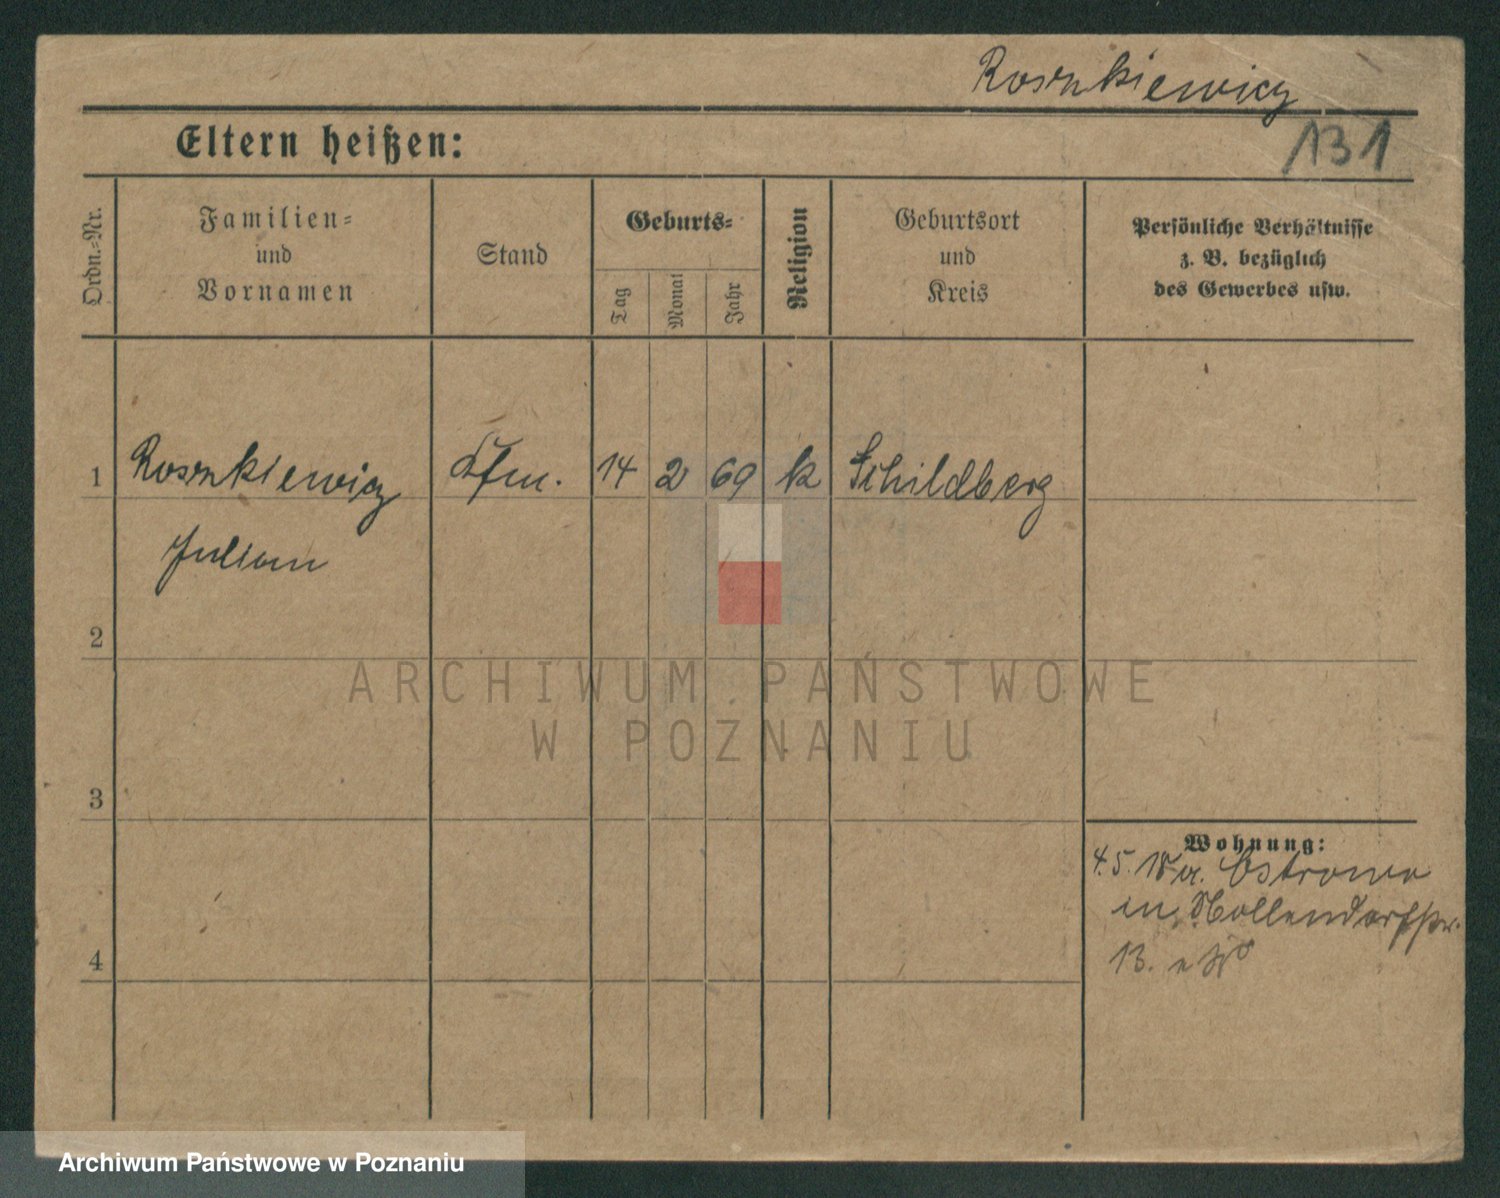 Roszkiewicz
131
Eltern heißen:
Ordn.-Nr.
Familien-
und
Vornamen
Stand
Geburts-
Tag
Monat
Jahr
Religion
Geburtsort
und
Kreis
Persönliche Verhältnisse
z. B. bezüglich
des Gewerbes usw.
1 Roszkiewicz 14 2 69 k Schildberg
Julian
2
ARCHIWUM PAŃSTWOWE
W POZNANIU
3
Wohnung:
4. 5. 18 Ostrowo
in Nollendorfstr.
13.
4
Archiwum Państwowe w Poznaniu